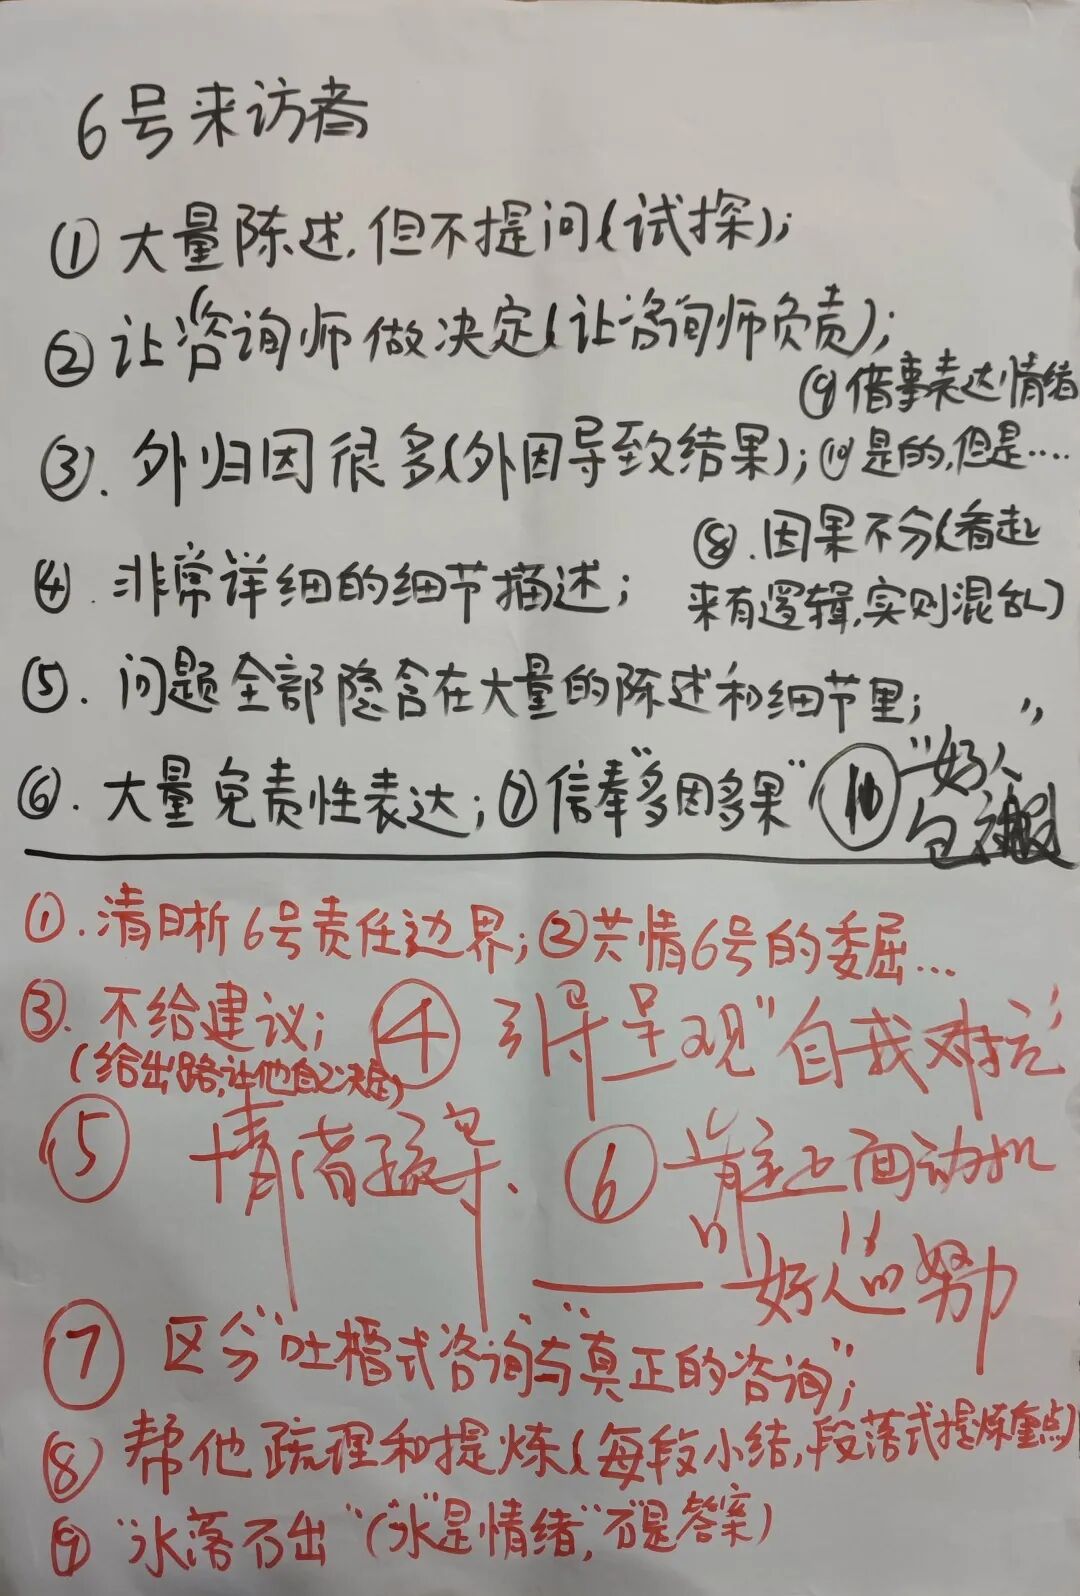 6号来访者
①大量陈述,但不提问(试探);
②让咨询师做决定(让咨询师负责);
⑨借事表达情绪
③.外归因很多(外因导致结果);⑩是的,但是....
⑧.因果不分(看起
来有逻辑,实则混乱)
④.非常详细的细节描述;
⑤.问题全部隐含在大量的陈述和细节里;
⑥.大量免责性表达;⑦信奉"多因多果"
⑩"好人"
包袱
①.清晰6号责任边界;②共情6号的委屈...
③.不给建议;
(给出路,让他自己决定)
④引导呈现"自我对抗"
⑤情绪
⑥肯定正面动机
——"好人"的努力
⑦区分"吐槽式咨询"与"真正的咨询";
⑧帮他疏理和提炼(每段小结,段落式提炼重点)
⑨"水落石出"("水"是情绪,"石"是答案)